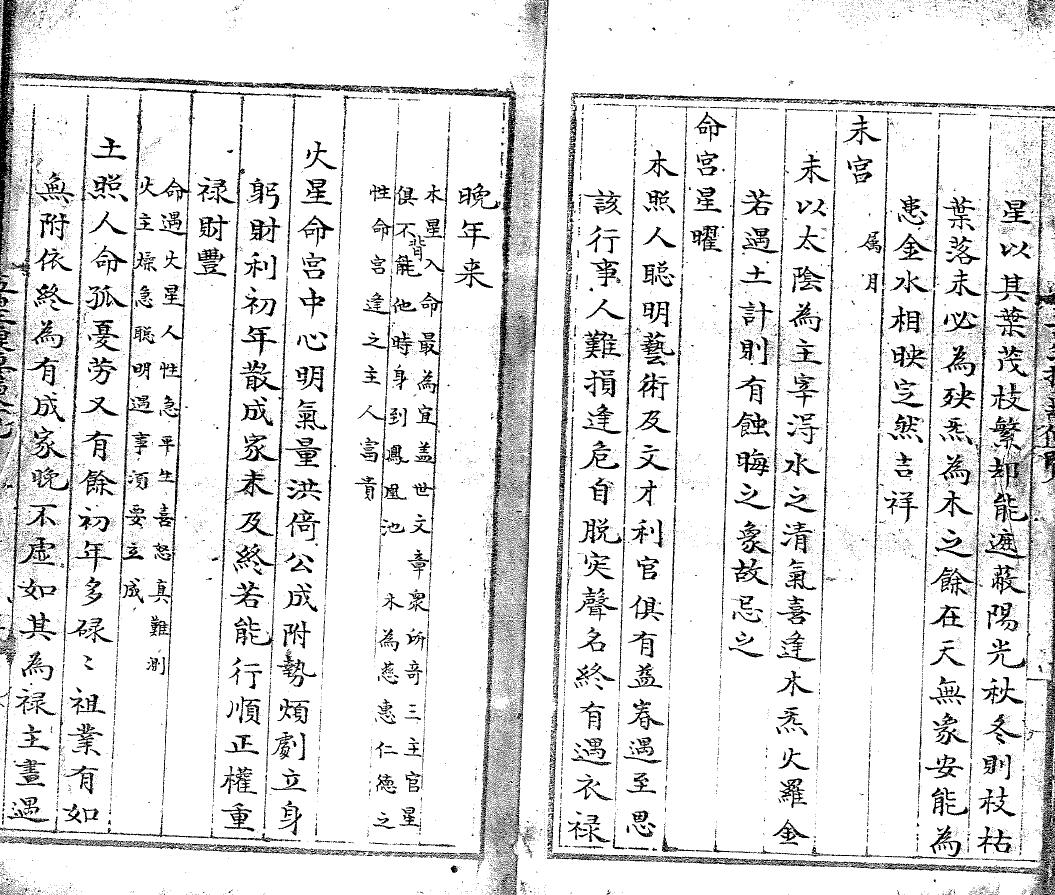 星以其葉茂枝繁却能遮蔽陽光秋冬則枝枯
葉落未必為殃炁為木之餘在天無象安能為
患金水相映定然吉祥
未宮
属月
未以太陰為主宰浔水之清氣喜逢木炁火羅金
若遇土計則有蝕晦之象故忌之
命宮星曜
木照人聪明藝術及文才利官俱有益眷遇至思
該行事人難損逢危自脱灾聲名終有遇衣禄
晩年来
木星入命最為宜盖世文章衆所竒三主官星
俱不背能他時身到鳳凰池 木為慈惠仁德之
性命宮逢之主人富貴
火星命宮中心明氣量洪倚公成附勢煩劇立身
躬財利初年散成家末及終若能行順正權重
禄財豐
命遇火星人性急平生喜怒真難測
火主燥急聪明遇事湏要立成
土照人命孤憂劳又有餘初年多碌〻祖業有如
無附依終為有成家晩不虚如其為禄主晝遇